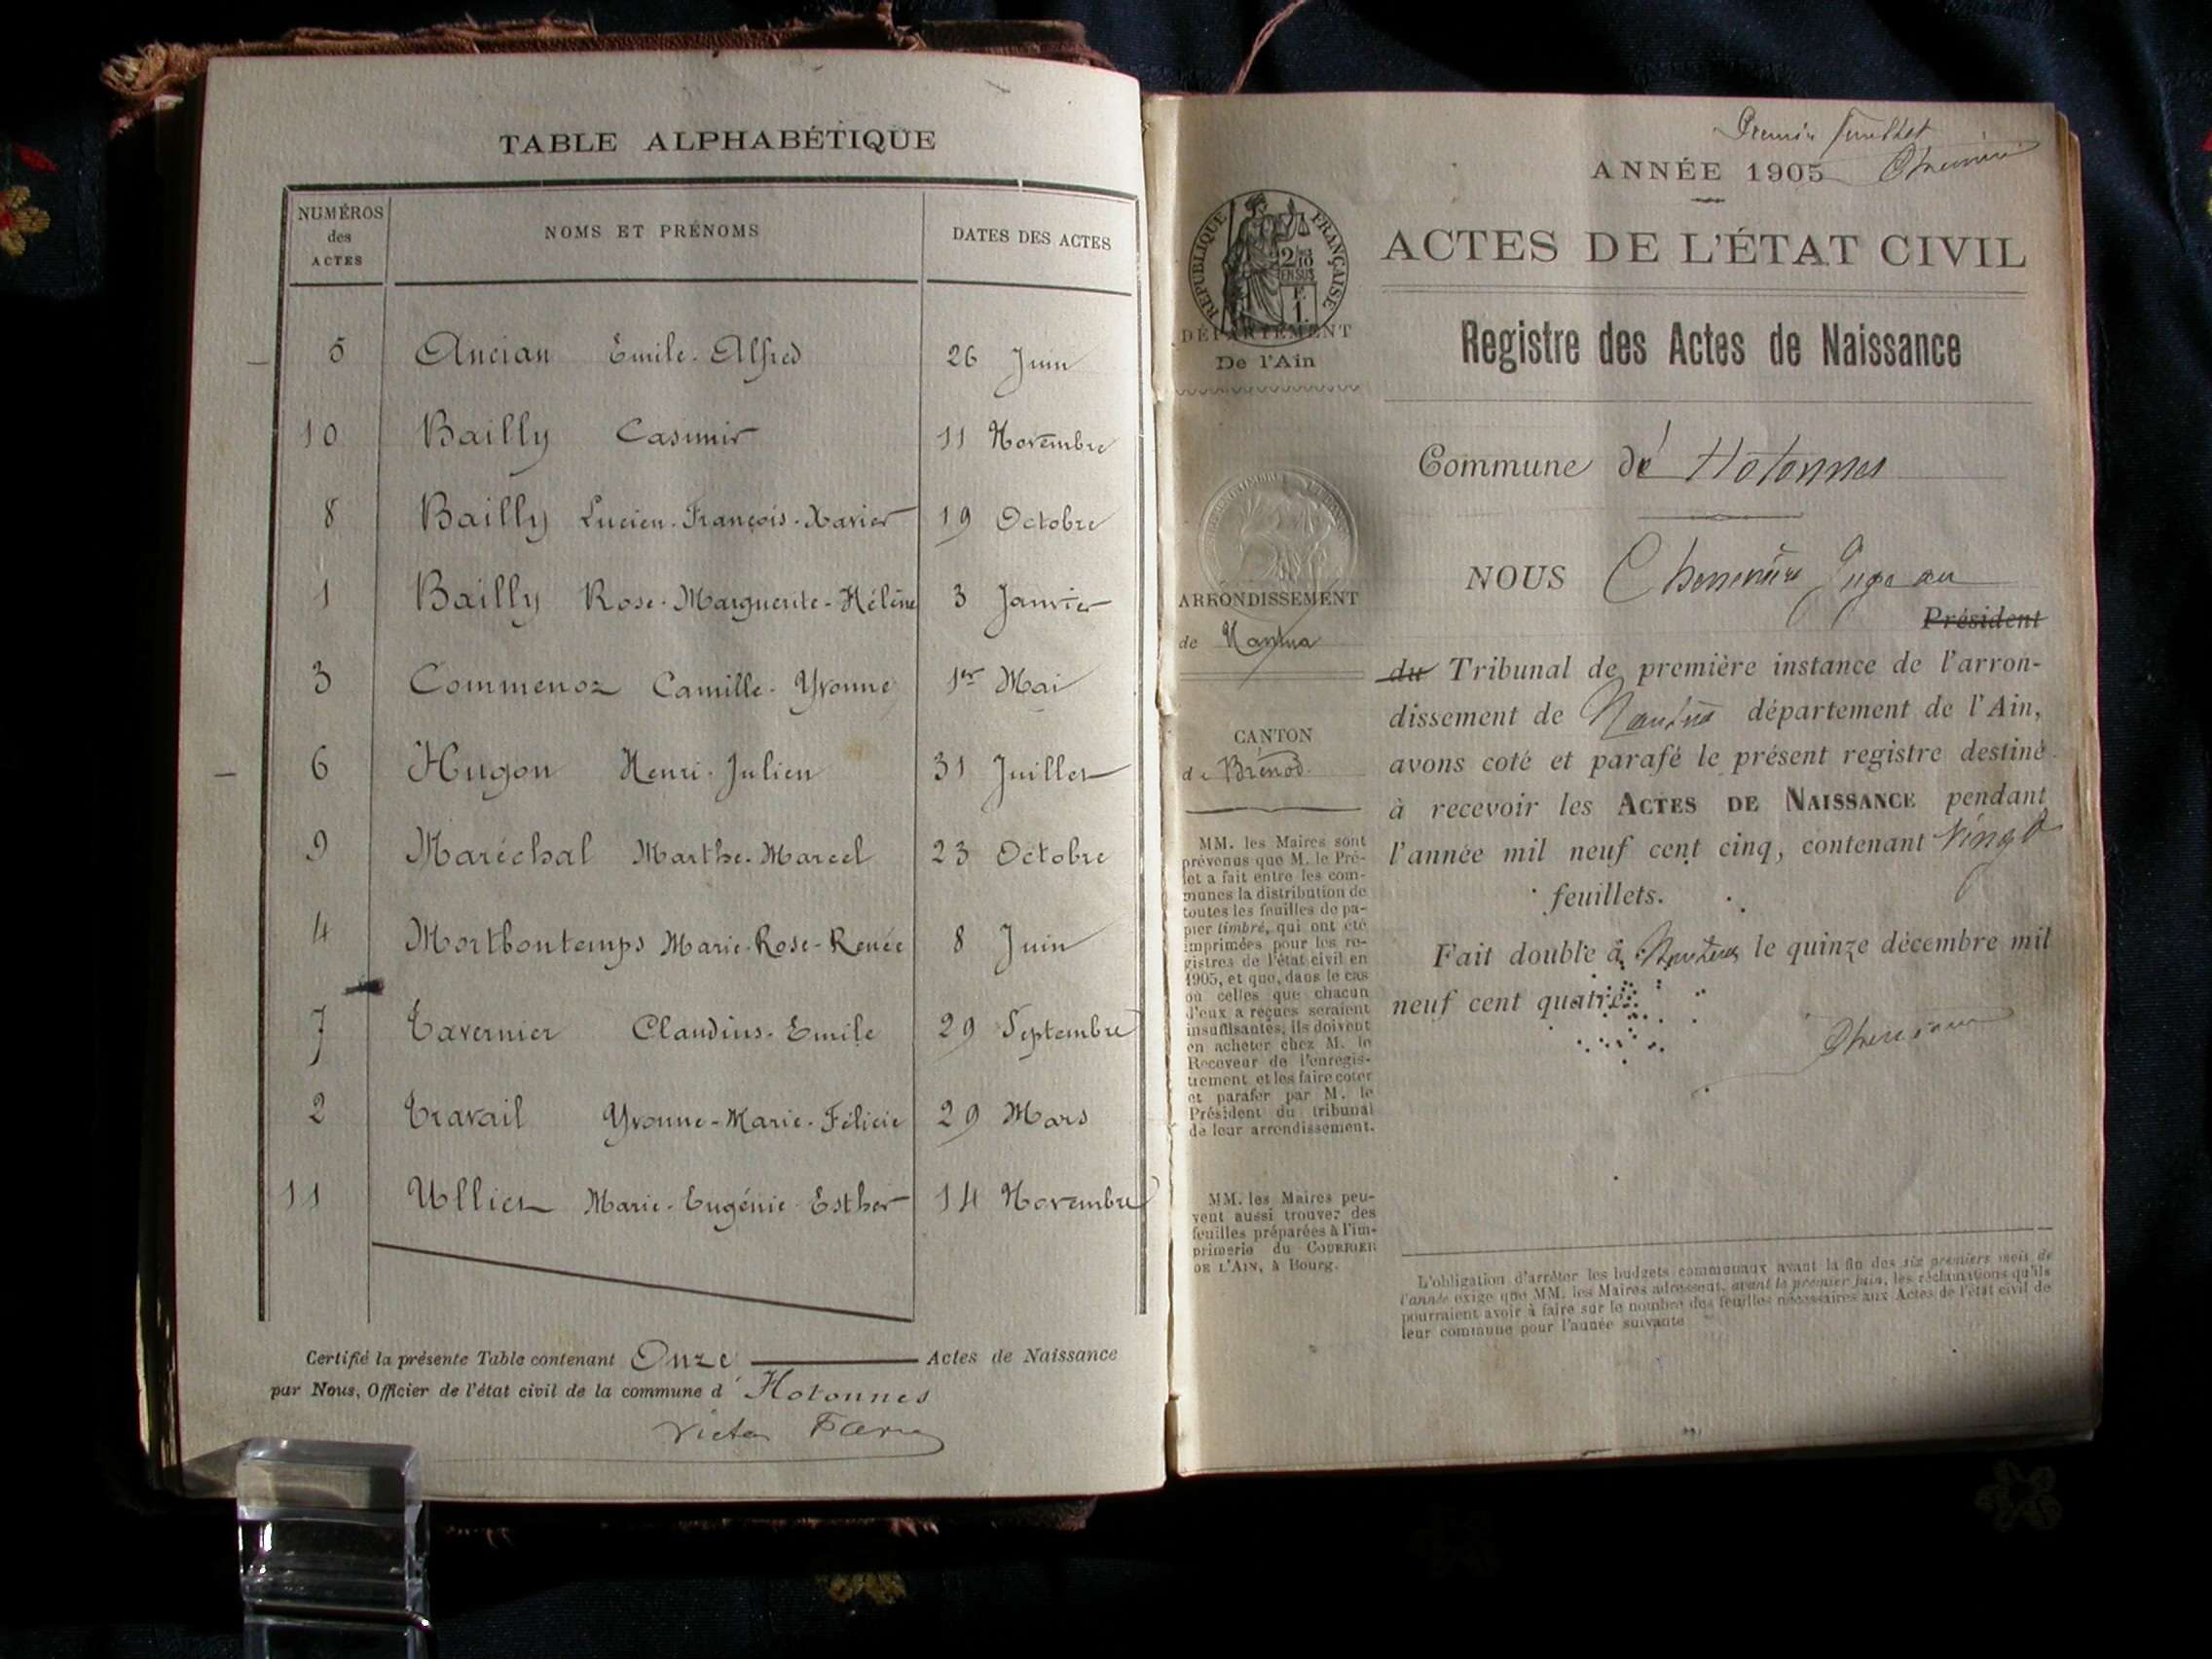 TABLE ALPHABÉTIQUE
NUMÉROS des ACTES NOMS ET PRÉNOMS DATES DES ACTES
5 Ancian Emile-Alfred 26 Juin
10 Bailly Casimir 11 Novembre
8 Bailly Lucien-François-Xavier 19 Octobre
1 Bailly Rose-Marguerite-Hélène 3 Janvier
3 Commenoz Camille-Yvonne 1er Mai
6 Hugon Henri-Julien 31 Juillet
9 Maréchal Marthe-Marcel 23 Octobre
4 Mortbontemps Marie-Rose-Renée 8 Juin
7 Tavernier Claudius-Emile 29 Septembre
2 Travail Yvonne-Marie-Félicie 29 Mars
11 Ulliet Marie-Eugénie-Esther 14 Novembre
Certifié la présente Table contenant Onze Actes de Naissance
par Nous, Officier de l'état civil de la commune d'Hotonnes
Victor
Premier feuillet
ANNÉE 1905
RÉPUBLIQUE FRANÇAISE
2/10 EN SUS
DÉPARTEMENT
De l'Ain
ARRONDISSEMENT
de Nantua
CANTON
de Brénod
MM. les Maires sont
prévenus que M. le Pré-
fet a fait entre les com-
munes la distribution de
toutes les feuilles de pa-
pier timbré, qui ont été
imprimées pour les re-
gistres de l'état civil en
1905, et que, dans le cas
où celles que chacun
d'eux a reçues seraient
insuffisantes, ils doivent
en acheter chez M. le
Receveur de l'enregis-
trement et les faire coter
et parafer par M. le
Président du tribunal
de leur arrondissement.
MM. les Maires peu-
vent aussi trouver des
feuilles préparées à l'im-
primerie du COURRIER
DE L'AIN, à Bourg.
ACTES DE L'ÉTAT CIVIL
Registre des Actes de Naissance
Commune d'Hotonnes
NOUS Juge au
Président
du Tribunal de première instance de l'arron-
dissement de Nantua département de l'Ain,
avons coté et parafé le présent registre destiné
à recevoir les ACTES DE NAISSANCE pendant
l'année mil neuf cent cinq, contenant vingt
feuillets.
Fait double à Nantua le quinze décembre mil
neuf cent quatre.
L'obligation d'arrêter les budgets communaux avant la fin des six premiers mois de
l'année exige que MM. les Maires adressent, avant le premier juin, les réclamations qu'ils
pourraient avoir à faire sur le nombre des feuilles nécessaires aux Actes de l'état civil de
leur commune pour l'année suivante